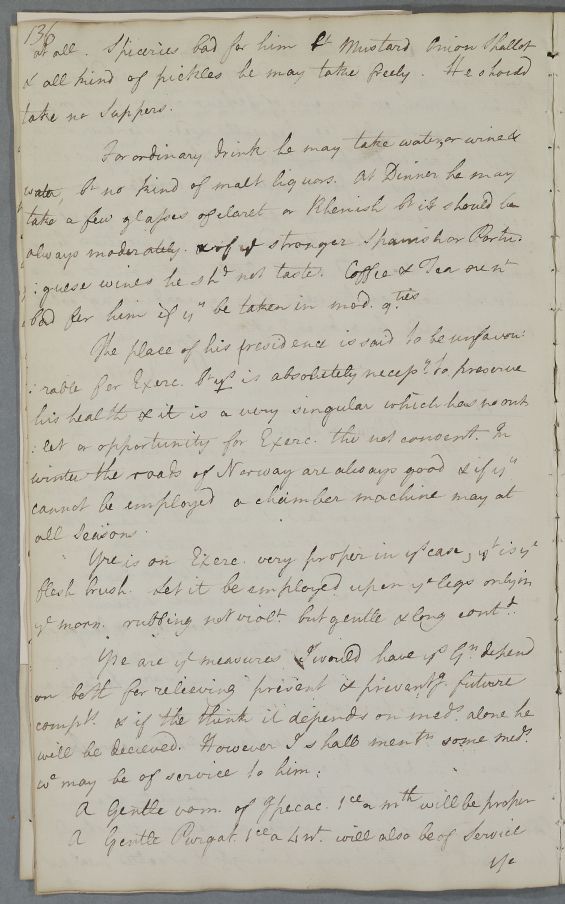 136
at all. Spiceries bad for him bt Mustard Onion Shallot
& all kind of pickles he may take freely. He should
take no Suppers.
For ordinary drink he may take water, or wine &
water, bt no kind of malt liquors. At Dinner he may
take a few glasses of claret or Rhenish bt it should be
always moderately. & of ye stronger Spanish or Portu:
:guese wines he shd not taste. Coffee & Tea are nt
bad for him if yy be taken in mod. qties
The place of his presidence is said to be unfavou:
:rable for Exerc. bt yt is absolutely necessy to preserve
his health & it is a very singular which has no out
:let or opportunity for Exerc. tho not convent. In
winter the roads of Norway are always good & if yy
cannot be employed a chamber machine may at
all Seasons.
Yre is an Exerc. very proper in ys case, yt is ye
flesh brush. Let it be employed upon ye legs only in
ye morn. rubbing not violt. but gentle & long contd.
Yse are ye measures I would have ys Gn depend
on both for relieving present & preventg. future
compts. & if he think it depends on medn. alone he
will be decieved. However I shall mentn some meds.
wc may be of service to him:
A Gentle vom. of Ipecac. 1ce a mth will be proper
A Gentle Purgat. 1ce a 4nt. will also be of Service
Ye